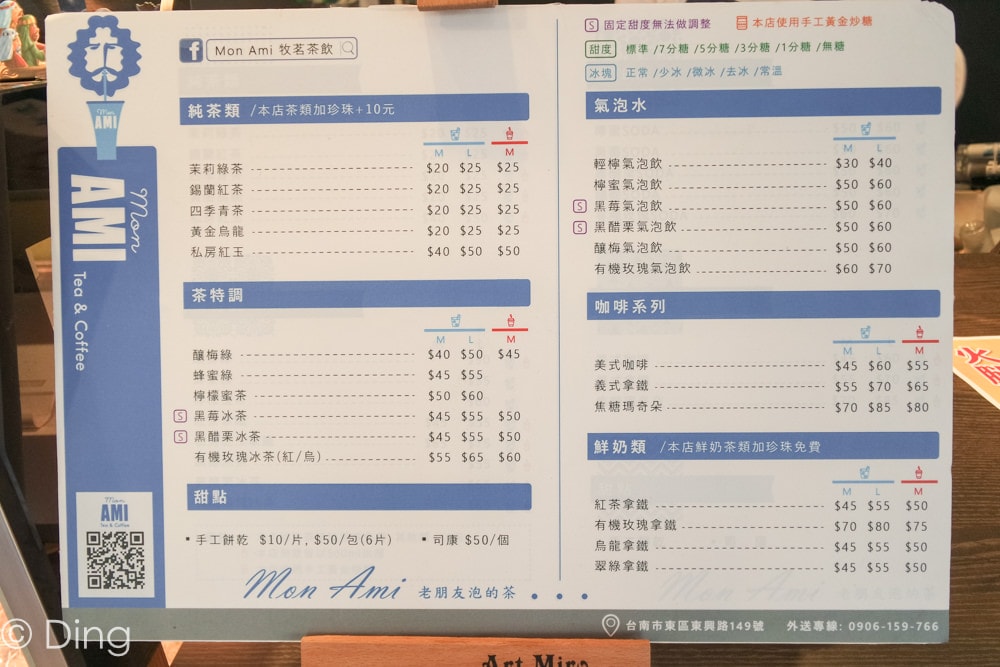 Mon
AMI
Mon
AMI
Tea & Coffee
Mon Ami 牧茗茶飲
純茶類 /本店茶類加珍珠+10元
M L M
茉莉綠茶 $20 $25 $25
錫蘭紅茶 $20 $25 $25
四季青茶 $20 $25 $25
黃金烏龍 $20 $25 $25
私房紅玉 $40 $50 $50
茶特調
M L M
釀梅綠 $40 $50 $45
蜂蜜綠 $45 $55
檸檬蜜茶 $50 $60
S 黑莓冰茶 $45 $55 $50
S 黑醋栗冰茶 $45 $55 $50
有機玫瑰冰茶(紅/烏) $55 $65 $60
甜點
▪手工餅乾 $10/片, $50/包(6片) ▪司康 $50/個
Mon Ami 老朋友泡的茶
Mon
AMI
Tea & Coffee
S 固定甜度無法做調整 本店使用手工黃金炒糖
甜度 標準 /7分糖 /5分糖 /3分糖 /1分糖 /無糖
冰塊 正常 /少冰 /微冰 /去冰 /常溫
氣泡水
M L
輕檸氣泡飲 $30 $40
檸蜜氣泡飲 $50 $60
S 黑莓氣泡飲 $50 $60
S 黑醋栗氣泡飲 $50 $60
釀梅氣泡飲 $50 $60
有機玫瑰氣泡飲 $60 $70
咖啡系列
M L M
美式咖啡 $45 $60 $55
義式拿鐵 $55 $70 $65
焦糖瑪奇朵 $70 $85 $80
鮮奶類 /本店鮮奶茶類加珍珠免費
M L M
紅茶拿鐵 $45 $55 $50
有機玫瑰拿鐵 $70 $80 $75
烏龍拿鐵 $45 $55 $50
翠綠拿鐵 $45 $55 $50
台南市東區東興路149號 外送專線: 0906-159-766
© Ding